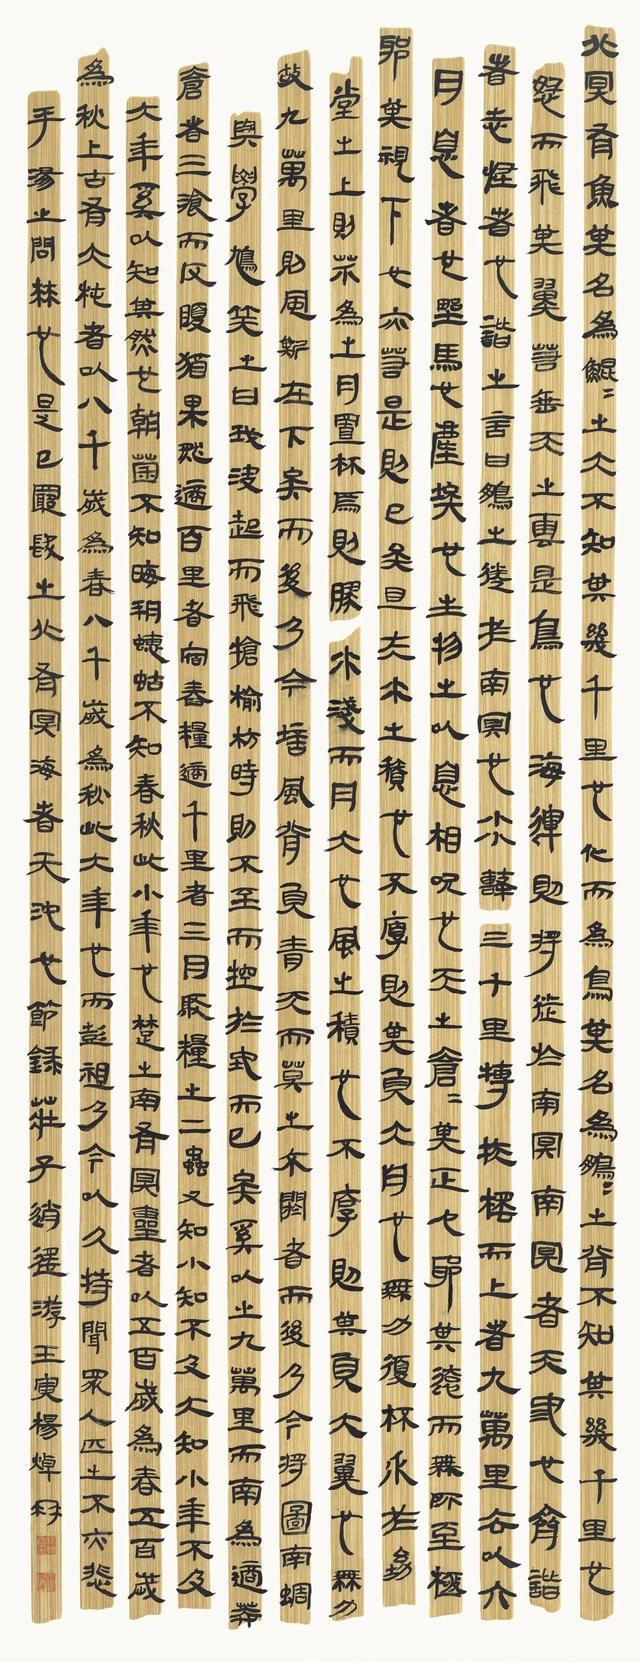 北冥有魚其名為鯤〻之大不知其幾千里也化而為鳥其名為鵬〻之背不知其幾千里也
怒而飛其翼若垂天之雲是鳥也海運則將徙於南冥南冥者天池也齊諧
者志怪者也諧之言曰鵬之徙於南冥也水擊三千里摶扶搖而上者九萬里去以六
月息者也野馬也塵埃也生物之以息相吹也天之蒼〻其正色邪其遠而無所至極
邪其視下也亦若是則已矣且夫水之積也不厚則其負大舟也無力覆杯水於坳
堂之上則芥為之舟置杯焉則膠水淺而舟大也風之積也不厚則其負大翼也無力
故九萬里則風斯在下矣而後乃今培風背負青天而莫之夭閼者而後乃今將圖南蜩
與學鳩笑之曰我決起而飛搶榆枋時則不至而控於地而已矣奚以之九萬里而南為適莽
蒼者三飡而反腹猶果然適百里者宿舂糧適千里者三月聚糧之二蟲又知小知不及大知小年不及
大年奚以知其然也朝菌不知晦朔蟪蛄不知春秋此小年也楚之南有冥靈者以五百歲為春五百歲
為秋上古有大椿者以八千歲為春八千歲為秋此大年也而彭祖乃今以久特聞眾人匹之不亦悲
乎湯之問棘也是已窮髮之北有冥海者天池也節錄莊子逍遙游壬寅楊焯